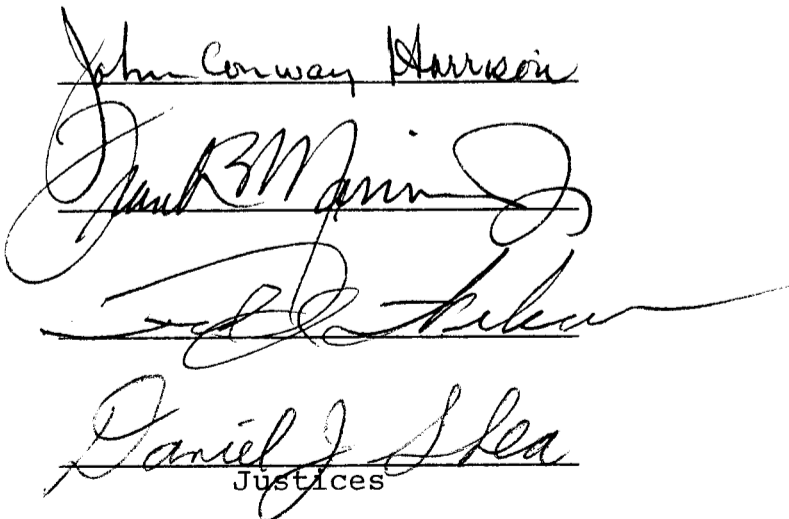 John Conway Harrison
Frank B Morrison Jr
Daniel J Shea
Justices